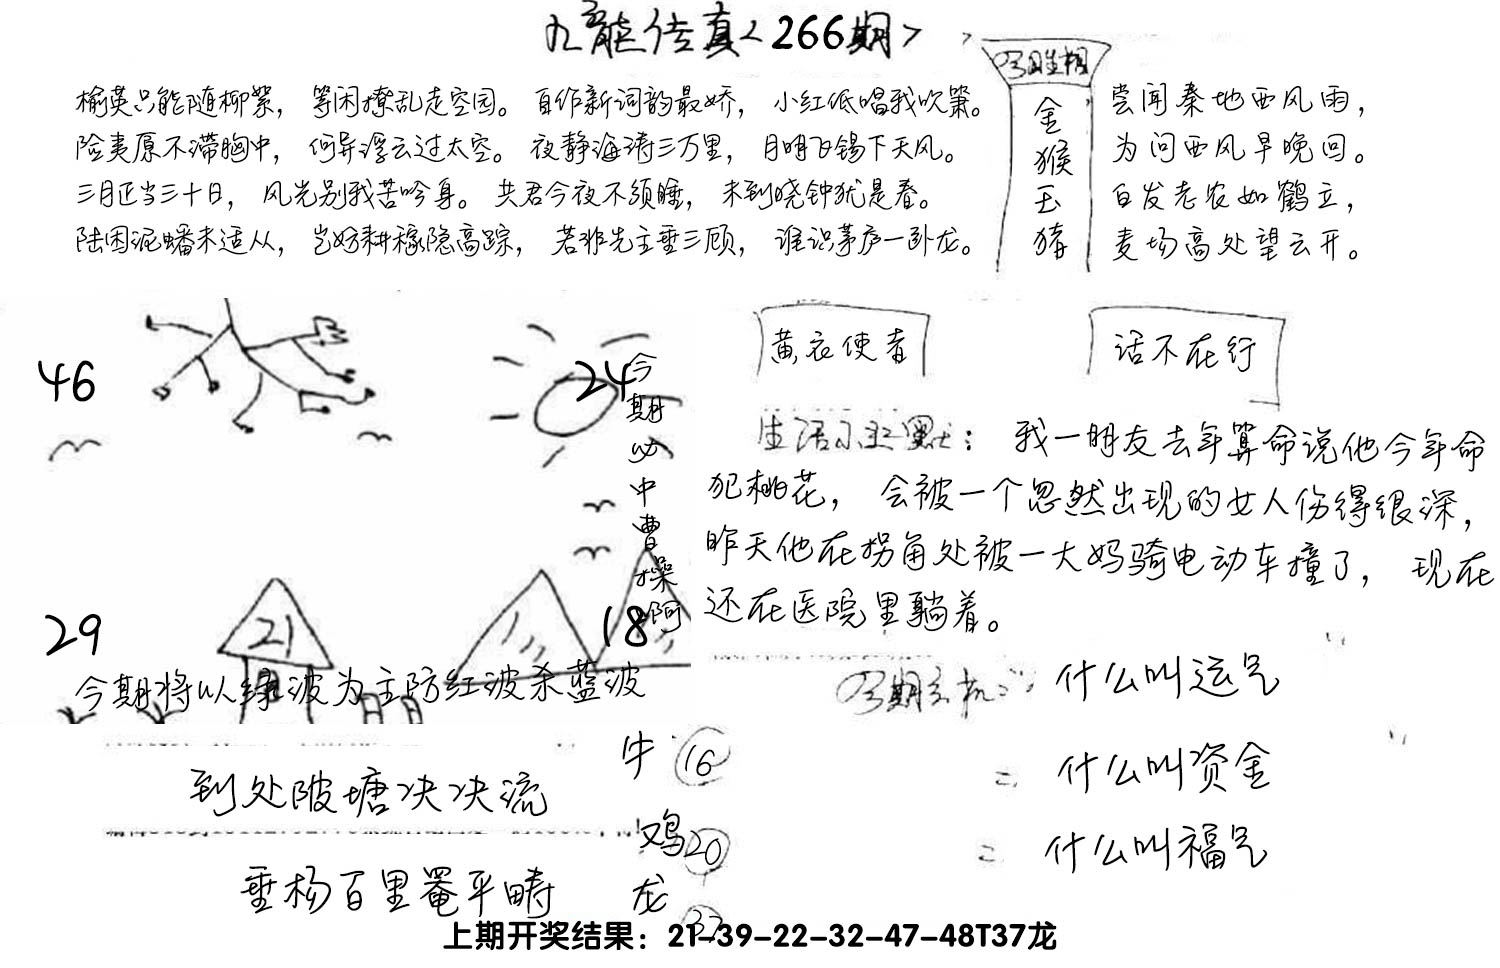 九龍传真<266期>
榆荚只能随柳絮，等闲撩乱走空园。自作新词韵最娇，小红低唱我吹箫。
险夷原不滞胸中，何异浮云过太空。夜静海涛三万里，月明飞锡下天风。
三月正当三十日，风光别我苦吟身。共君今夜不须睡，未到晓钟犹是春。
陆困泥蟠未适从，岂妨耕稼隐高踪，若非先主垂三顾，谁识茅庐一卧龙。
金猴玉猪
尝闻秦地西风雨，
为问西风早晚回。
白发老农如鹤立，
麦场高处望云开。
46
24
29
21
18
今期必中曹操阿
今期将以绿波为主防红波杀蓝波
黄衣使者
话不在行
生活小幽默：我一朋友去年算命说他今年命
犯桃花，会被一个忽然出现的女人伤得很深，
昨天他在拐角处被一大妈骑电动车撞了，现在
还在医院里躺着。
什么叫运气
什么叫资金
什么叫福气
到处陂塘决决流
垂杨百里罨平畴
牛 16
鸡 20
龙
上期开奖结果：21-39-22-32-47-48T37龙